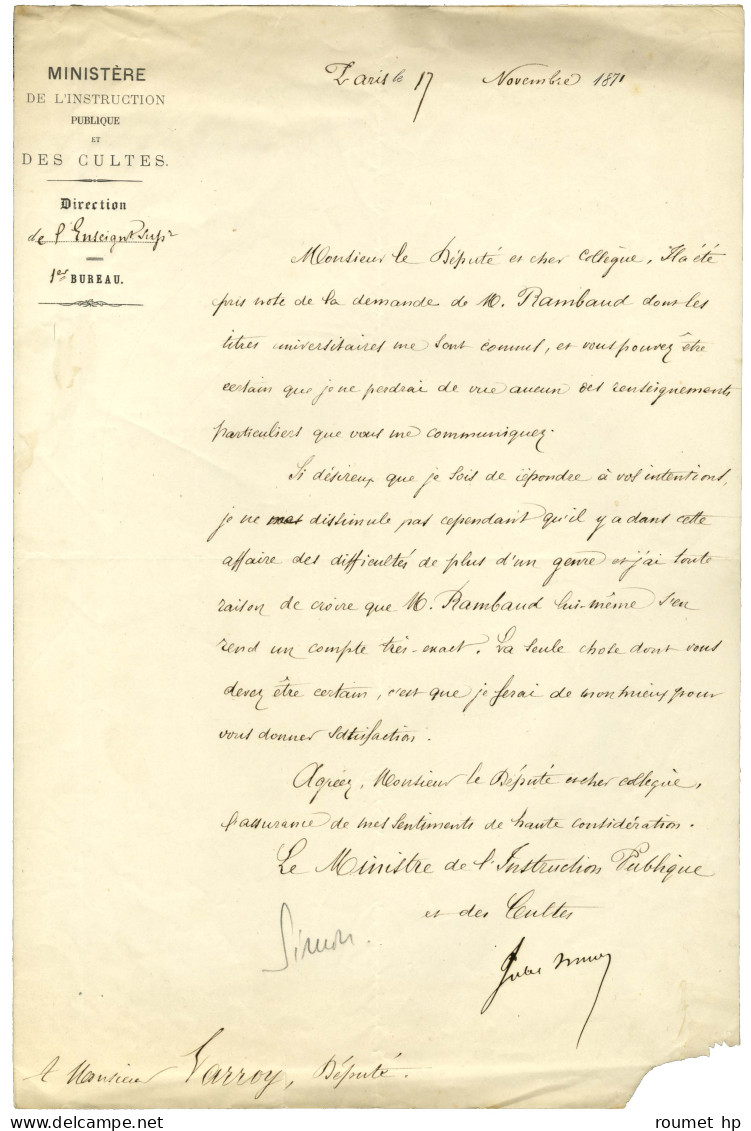 MINISTÈRE
DE L'INSTRUCTION
PUBLIQUE
ET
DES CULTES.
Direction
de l'Enseignt Supr
1er BUREAU.
Paris le 17 Novembre 1871
Monsieur le Député et cher Collègue, Il a été
pris note de la demande de M. Rambaud dont les
titres universitaires me sont connus, et vous pouvez être
certain que je ne perdrai de vue aucun des renseignements
particuliers que vous me communiquez.
Si désireux que je sois de répondre à vos intentions,
je ne dissimule pas cependant qu'il y a dans cette
affaire des difficultés de plus d'un genre et j'ai toute
raison de croire que M. Rambaud lui-même s'en
rend un compte très-exact. La seule chose dont vous
devez être certain, c'est que je ferai de mon mieux pour
vous donner satisfaction.
Agréez, Monsieur le Député et cher collègue,
l'assurance de mes sentiments de haute considération.
Le Ministre de l'Instruction Publique
et des Cultes
Simon.
Jules Simon
A Monsieur Varroy, Député.
roumet hp